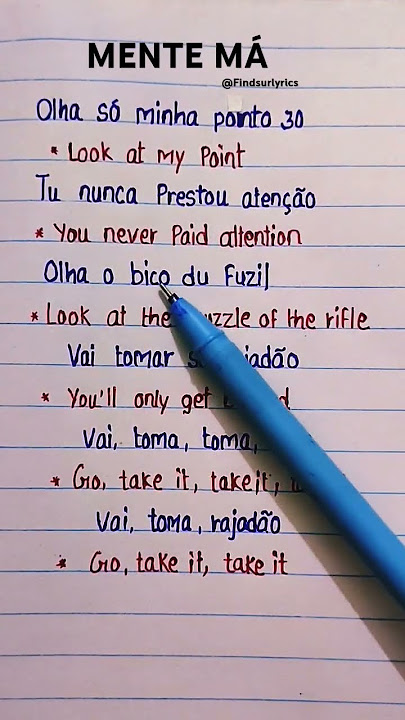 MENTE MÁ
@Findsurlyrics
Olha só minha ponto 30
* Look at my Point
Tu nunca Prestou atenção
* You never Paid attention
Olha o bico du Fuzil
* Look at the of the rifle
Vai tomar
* You'll only get
Vai, toma, toma,
* Go, take it, take it,
Vai, toma, rajadão
* Go, take it, take it